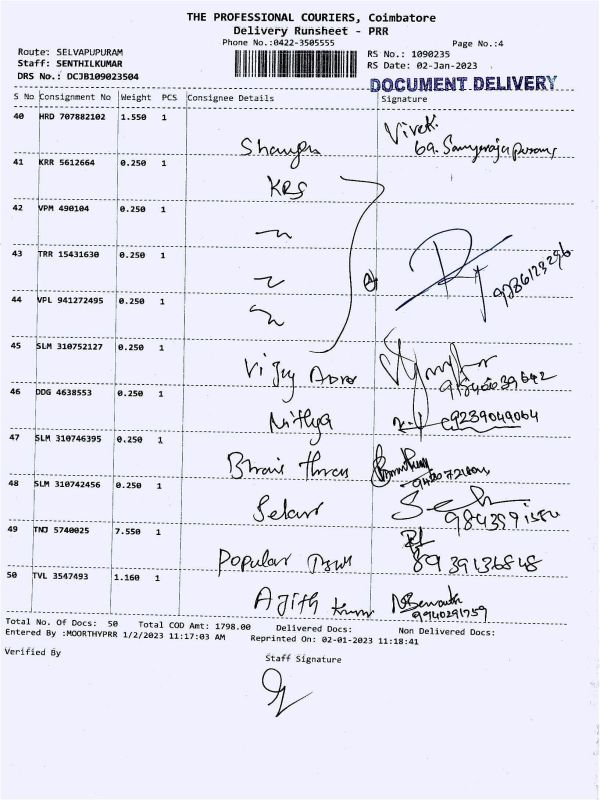 THE PROFESSIONAL COURIERS, Coimbatore
Delivery Runsheet - PRR
Phone No.:0422-3505555
Page No.:4
Route: SELVAPUPURAM
RS No.: 1090235
Staff: SENTHILKUMAR
RS Date: 02-Jan-2023
DRS No.: DCJB109023504
DOCUMENT DELIVERY
S No Consignment No Weight PCS Consignee Details Signature
40 HRD 707882102 1.550 1 Vivek
41 KRR 5612664 0.250 1 KRS
42 VPM 490104 0.250 1
43 TRR 15431630 0.250 1
44 VPL 941272495 0.250 1
45 SLM 310752127 0.250 1 Vijay
46 DDG 4638553 0.250 1 Nithya 9239049064
47 SLM 310746395 0.250 1
48 SLM 310742456 0.250 1
49 TNJ 5740025 7.550 1 Popular 8939136848
50 TVL 3547493 1.160 1 Ajith Kumar 9940291759
Total No. Of Docs: 50 Total COD Amt: 1798.00 Delivered Docs: Non Delivered Docs:
Entered By :MOORTHYPRR 1/2/2023 11:17:03 AM Reprinted On: 02-01-2023 11:18:41
Verified By
Staff Signature